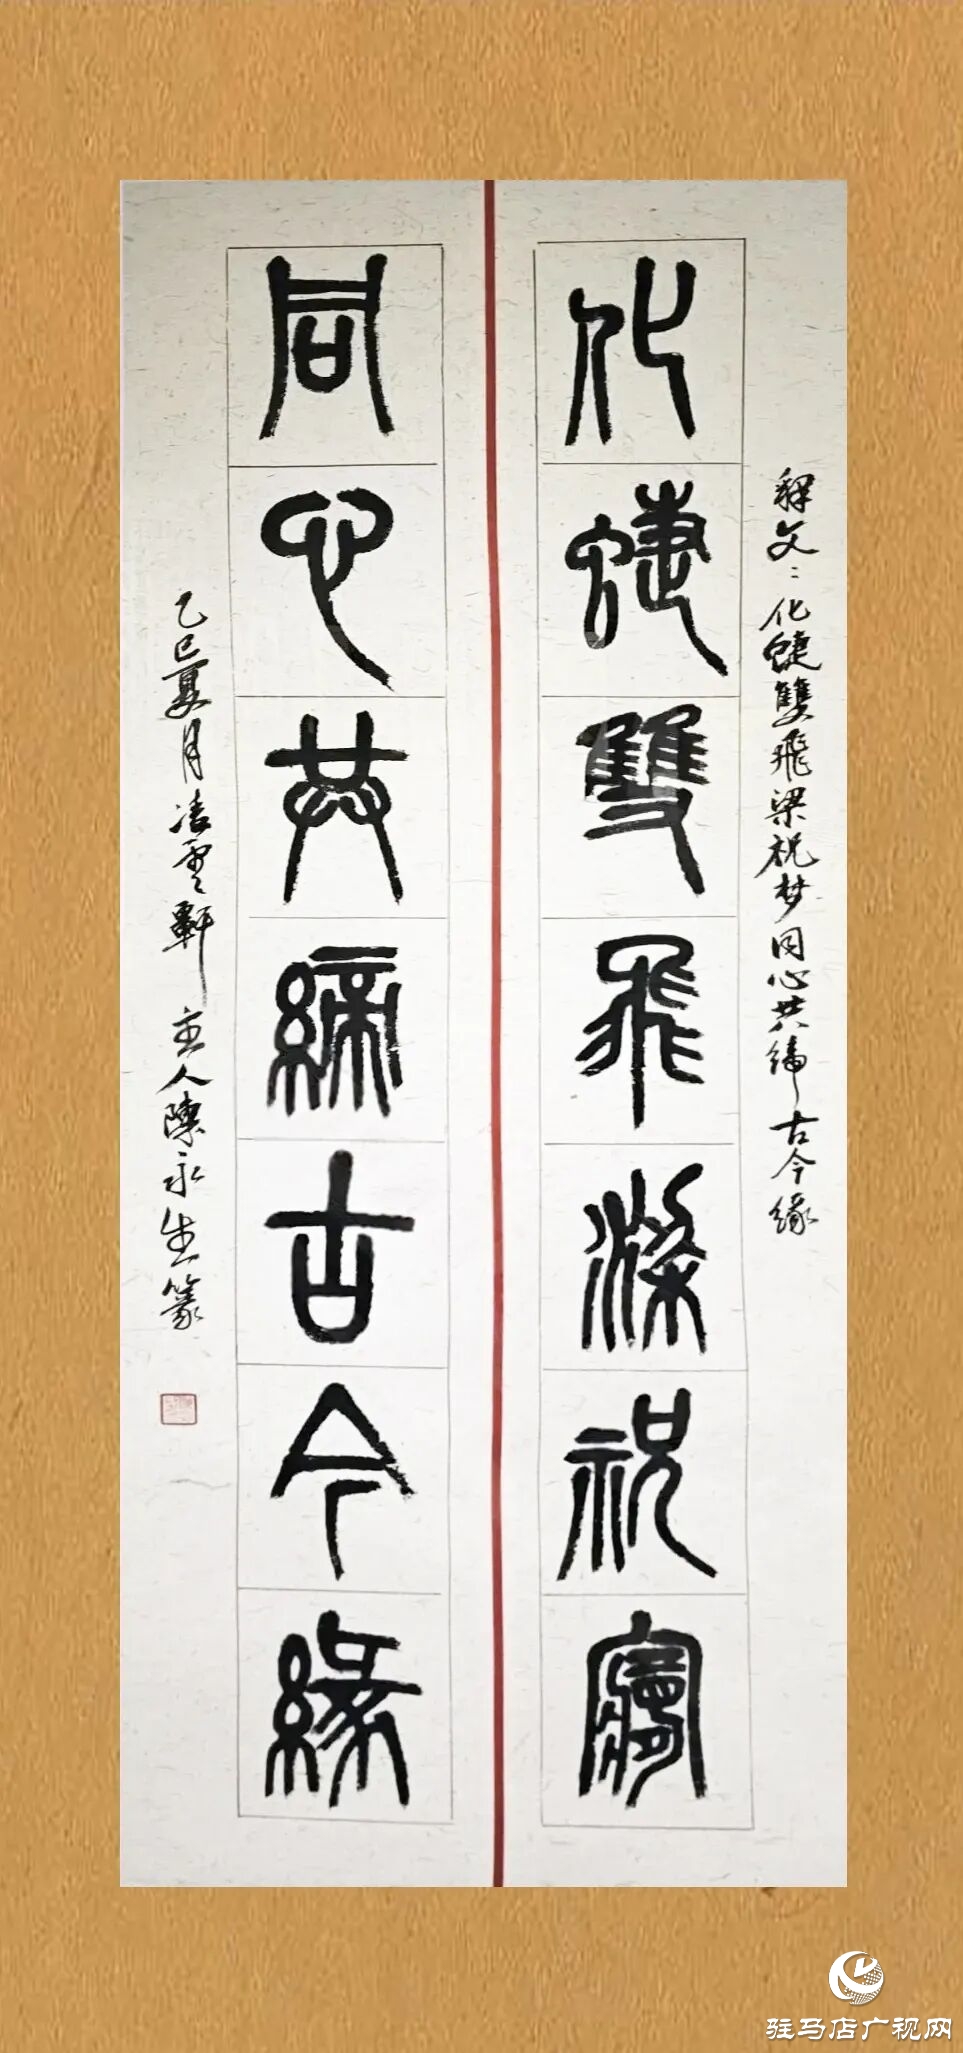 释文：化蜨雙飛梁祝梦同心共缔古今缘
化蜨雙飛梁祝夢
同心共締古今緣
乙巳夏月凌雲軒主人陳永生篆
驻马店广视网